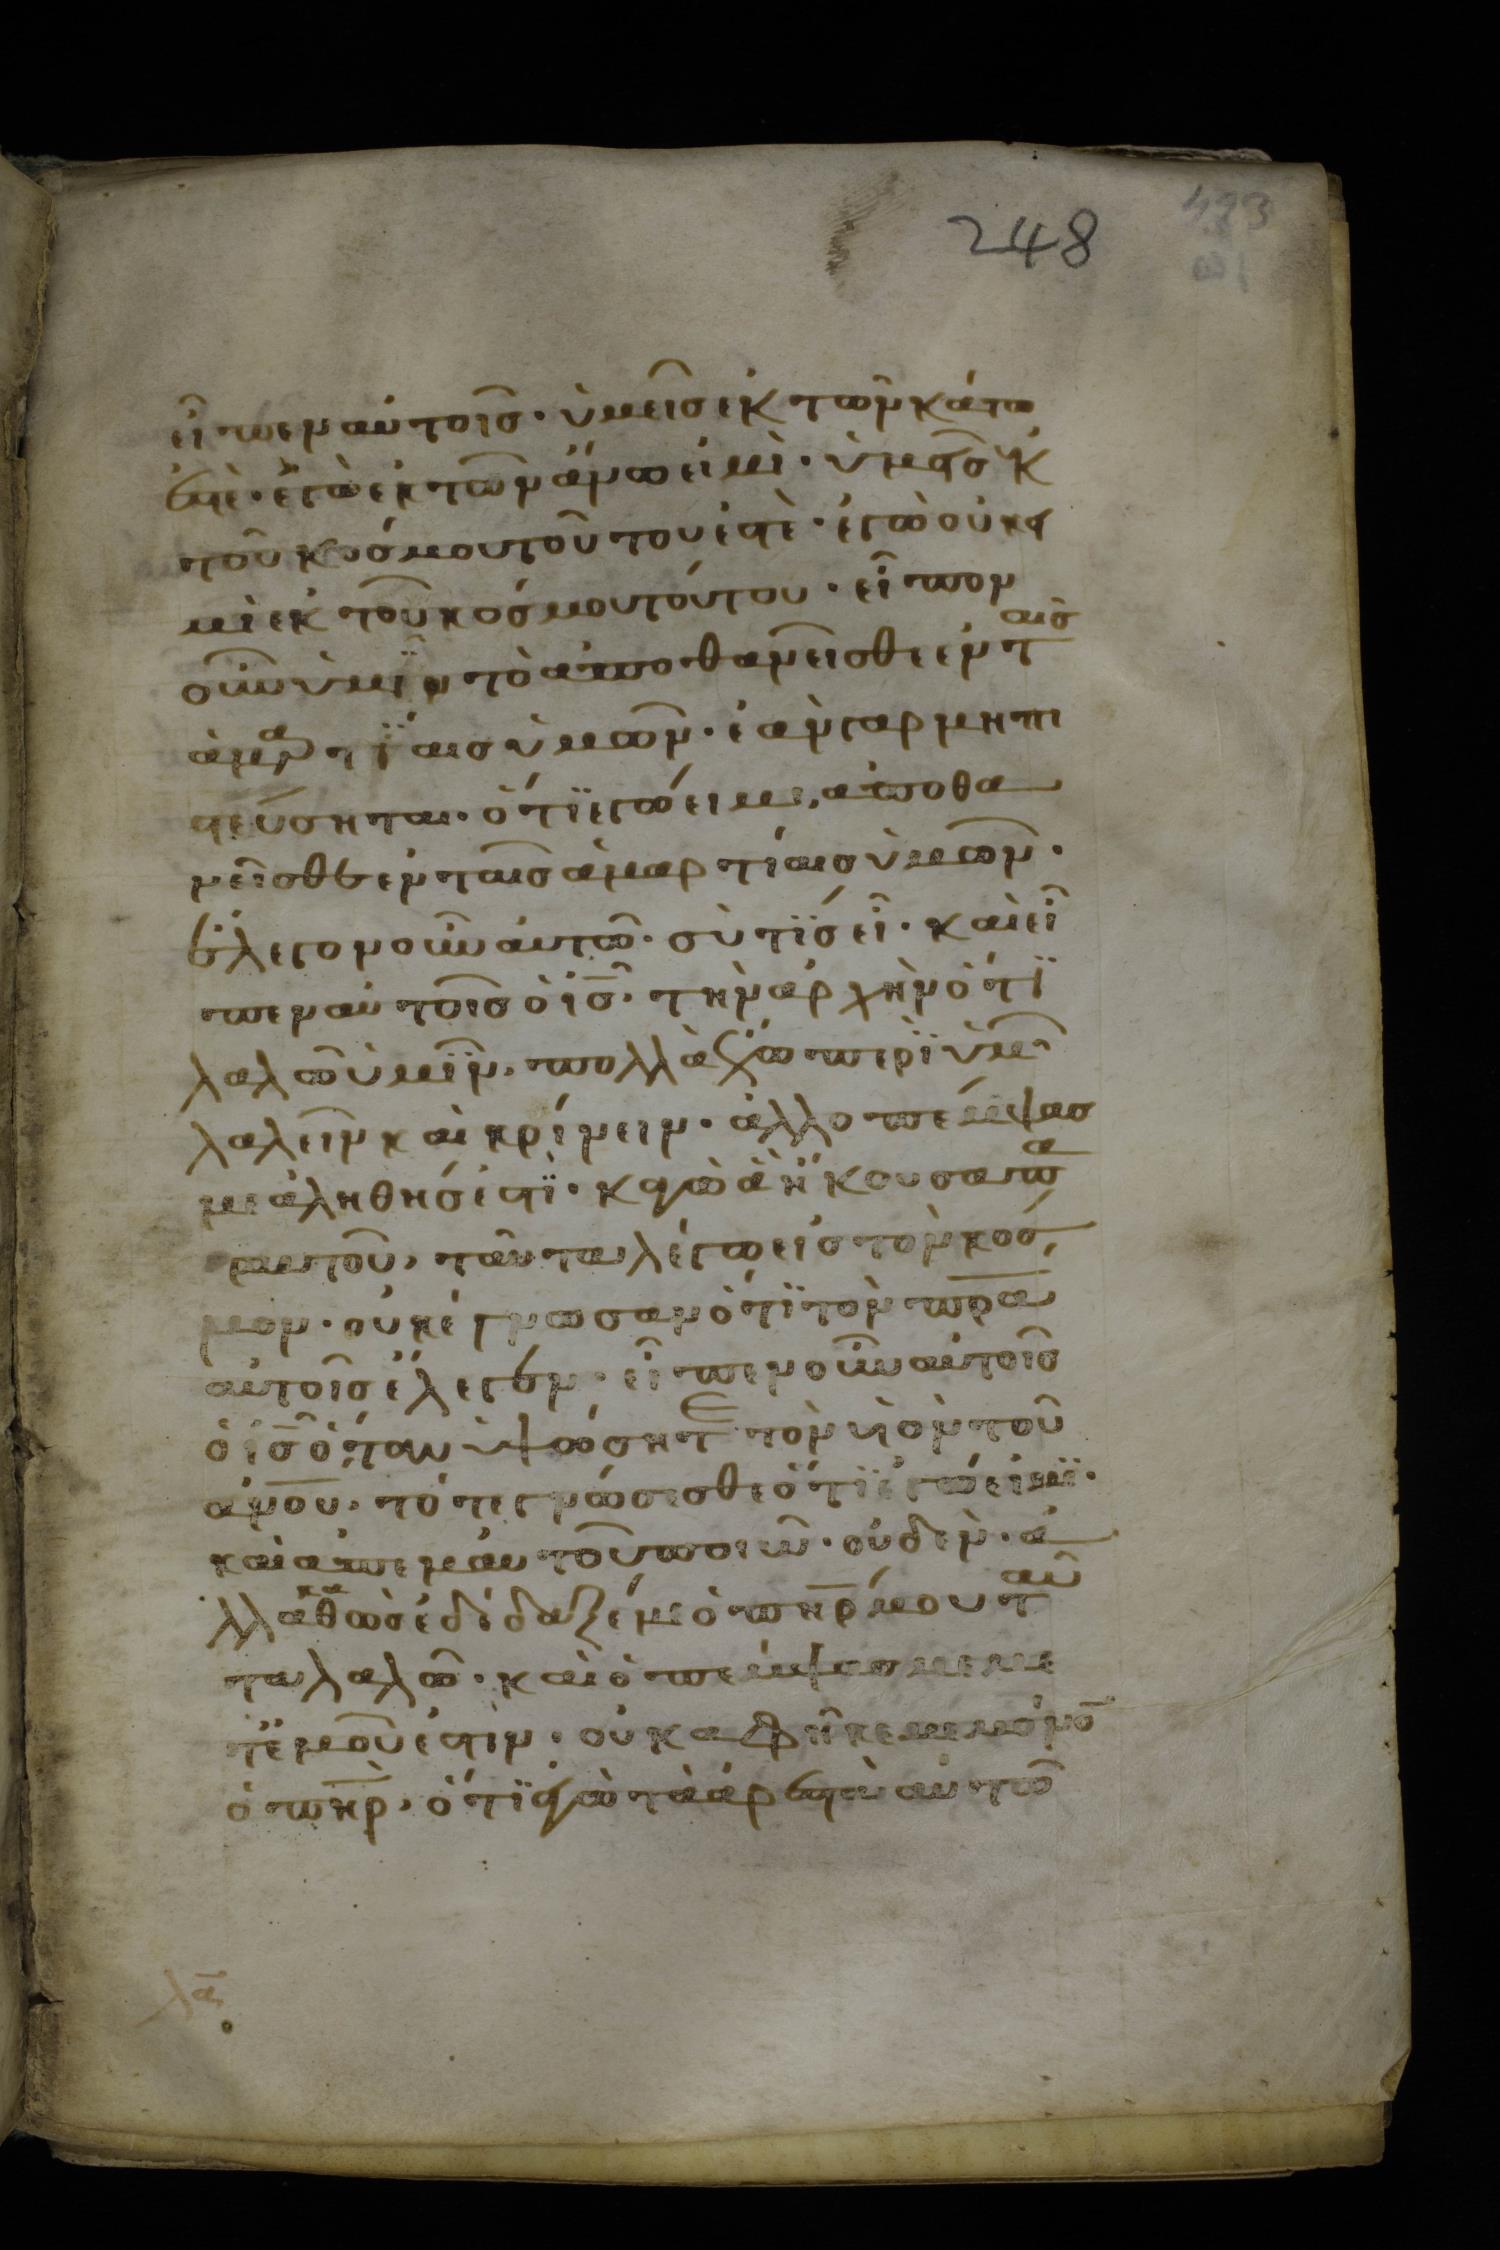 248
εἶπεν αὐτοῖς· ὑμεῖς ἐκ τῶν κάτω
ἐστέ· ἐγὼ ἐκ τῶν ἄνω εἰμὶ· ὑμεῖς ἐκ
τοῦ κόσμου τούτου ἐστὲ· ἐγὼ οὐκ εἰ
μὶ ἐκ τοῦ κόσμου τούτου· εἶπον
οὖν ὑμῖν ὅτι ἀποθανεῖσθε ἐν ταῖς
ἁμαρτίαις ὑμῶν· ἐὰν γὰρ μὴ πι
στεύσηται· ὅτι ἐγώ εἰμι, ἀποθα
νεῖσθε ἐν ταῖς ἁμαρτίαις ὑμῶν·
ἔλεγον οὖν αὐτῶ· σὺ τίς εἶ· καὶ εἶ
πεν αὐτοῖς ὁ ις· τὴν ἀρχὴν ὅτι
λαλῶ ὑμῖν· πολλὰ ἔχω περὶ ὑμῶν
λαλεῖν καὶ κρίνειν· ἀλλ ὁ πέμψας
με ἀληθής ἐστι· κἀγὼ ἃ ἤκουσα πα
ρ αυτοῦ, ταῦτα λέγω εἰς τὸν κόσ
μον· οὐκ ἔγνωσαν ὅτι τὸν πρα
αὐτοῖς ἔλεγεν· εἶπεν οὖν αὐτοῖς
ὁ ις ὅταν ὑψώσητε τὸν υἱὸν τοῦ
ανου· τότε γνώσεσθε ὅτι ἐγώ εἰμι·
καὶ ἀπ εμαυτοῦ ποιῶ· οὐδὲν· ἀ
λλὰ καθὼς ἐδίδαξέ με ὁ πηρ μου ταῦ
τα λαλῶ· καὶ ὁ πέμψας με με
τ ἐμοῦ ἐστὶν· οὐκ ἀφῆκε με μόνον
ὁ πηρ· ὅτι ἐγὼ τὰ ἀρεστὰ αὐτῶ